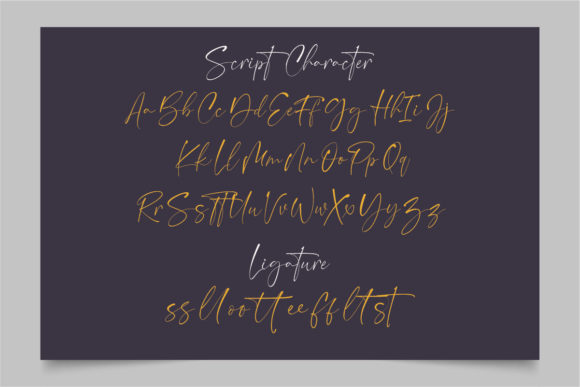 Script Character
Aa Bb Cc Dd Ee Ff Gg Hh Ii Jj
Kk Ll Mm Nn Oo Pp Qq
Rr Ss Tt Uu Vv Ww Xx Yy Zz
Ligature
ss ll oo tt ee ff lt st